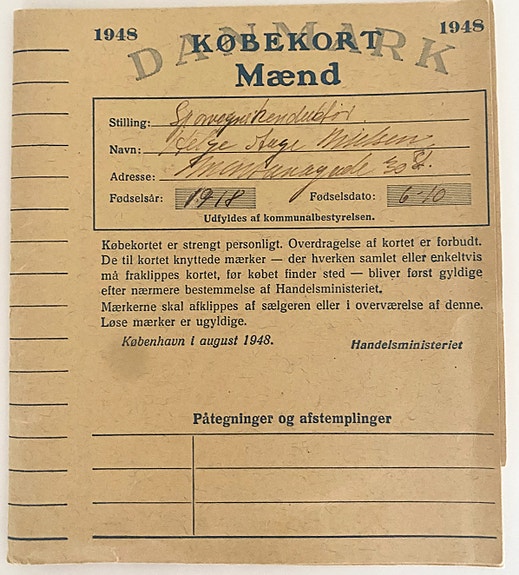 1948 KØBEKORT 1948
DANMARK
Mænd
Stilling: Sporvognskonduktør
Navn: Helge Aage Nielsen
Adresse: 30 St.
Fødselsår: 1918 Fødselsdato: 6-10
Udfyldes af kommunalbestyrelsen.
Købekortet er strengt personligt. Overdragelse af kortet er forbudt.
De til kortet knyttede mærker — der hverken samlet eller enkeltvis
må fraklippes kortet, før købet finder sted — bliver først gyldige
efter nærmere bestemmelse af Handelsministeriet.
Mærkerne skal afklippes af sælgeren eller i overværelse af denne.
Løse mærker er ugyldige.
København i august 1948. Handelsministeriet
Påtegninger og afstemplinger